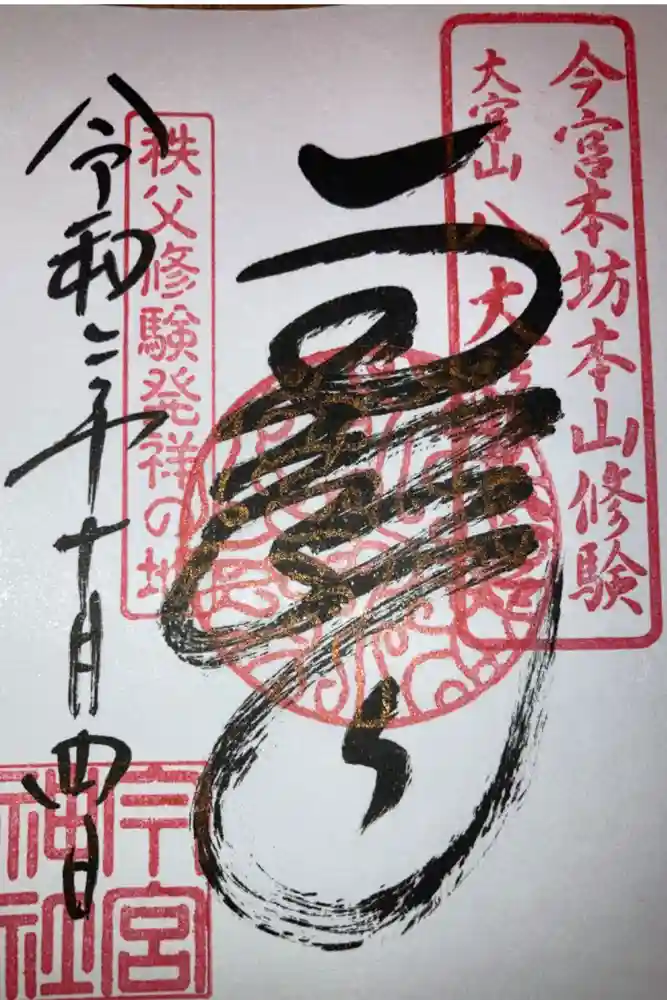 今宮本坊本山修験
大宮山 八大
秩父修験発祥の地
令和二年十月四日
今宮
神社